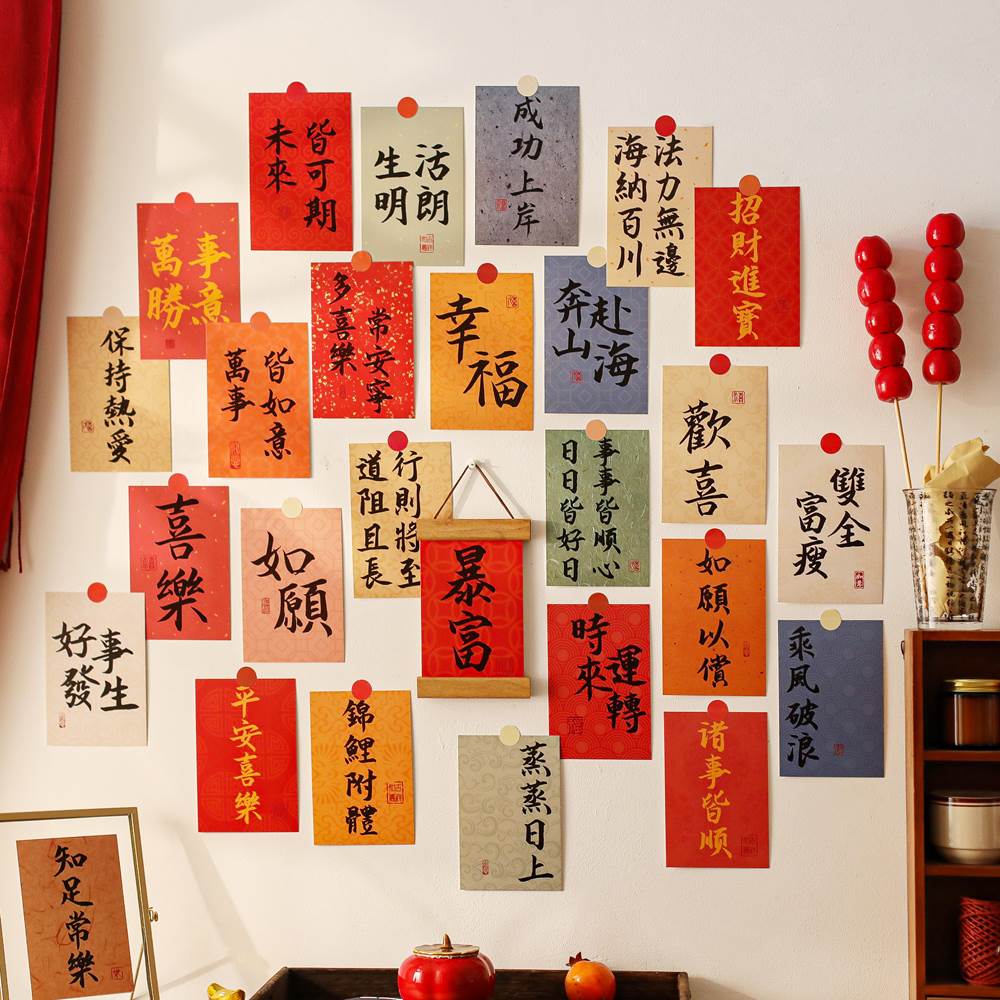 未來
皆可期
生活
明朗
成功上岸
海納百川
法力無邊
招財進寶
萬事
勝意
保持熱愛
萬事
皆如意
多喜樂
常安寧
幸福
奔赴
山海
歡喜
道阻且長
行則將至
日日皆好日
事事皆順心
富瘦
雙全
喜樂
如願
暴富
如願以償
好事
發生
時來
運轉
乘風破浪
平安喜樂
錦鯉附體
蒸蒸日上
诸事皆顺
知足常樂